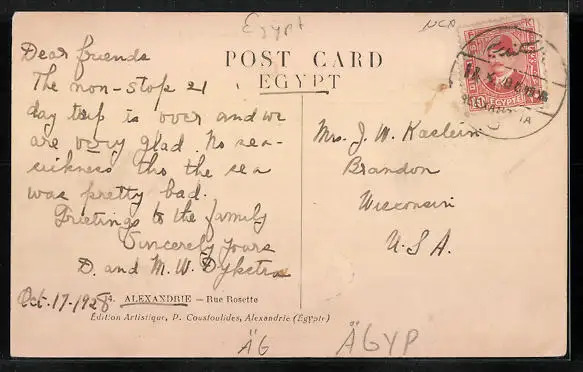 Egypt
NCA
POST CARD
EGYPT
Dear friends
The non-stop 21
day trip is over and we
are very glad. No sea-
sickness tho the sea
was pretty bad.
Greetings to the family
Sincerely Yours
D. and M. W. Dykstra
Oct. 17-1928
Mrs. J. W. Kaslein
Brandon
Wisconsin
U.S.A.
EGYPTE
4. ALEXANDRIE — Rue Rosette
Edition Artistique, P. Coustoulides, Alexandrie (Egypte)
ÄG
ÄGYP